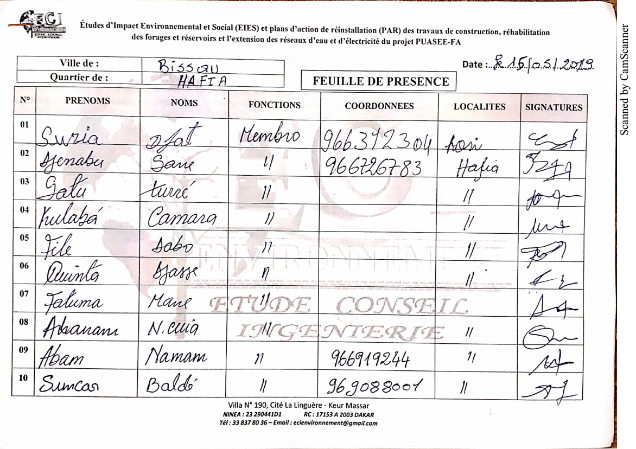 Études d'Impact Environnemental et Social (EIES) et plans d'action de réinstallation (PAR) des travaux de construction, réhabilitation
des forages et réservoirs et l'extension des réseaux d'eau et d'électricité du projet PUASEE-FA
Ville de : Bissau
Date : 15/05/2019
Quartier de : HAFIA
FEUILLE DE PRESENCE
N° PRENOMS NOMS FONCTIONS COORDONNEES LOCALITES SIGNATURES
01 Suzia Djat Membro 966312304
02 Djenabu Sane 〃 966726783 Hafia
03 Gatu turré 〃 〃
04 Kulabá Camara 〃 〃
05 File Dabo 〃 〃
06 Quinta Djasse 〃 〃
07 Fatuma Mane 〃 〃
08 〃 〃
09 Abam Namam 〃 966919244 〃
10 Suncar Baldé 〃 969088001 〃
ENVIRONNEMENT
ETUDE CONSEIL
INGENIERIE
Villa N° 190, Cité La Linguère - Keur Massar
NINEA : 23 290441D1 RC : 17153 A 2003 DAKAR
Tél : 33 837 80 36 – Email : ecienvironnement@gmail.com
Scanned by CamScanner